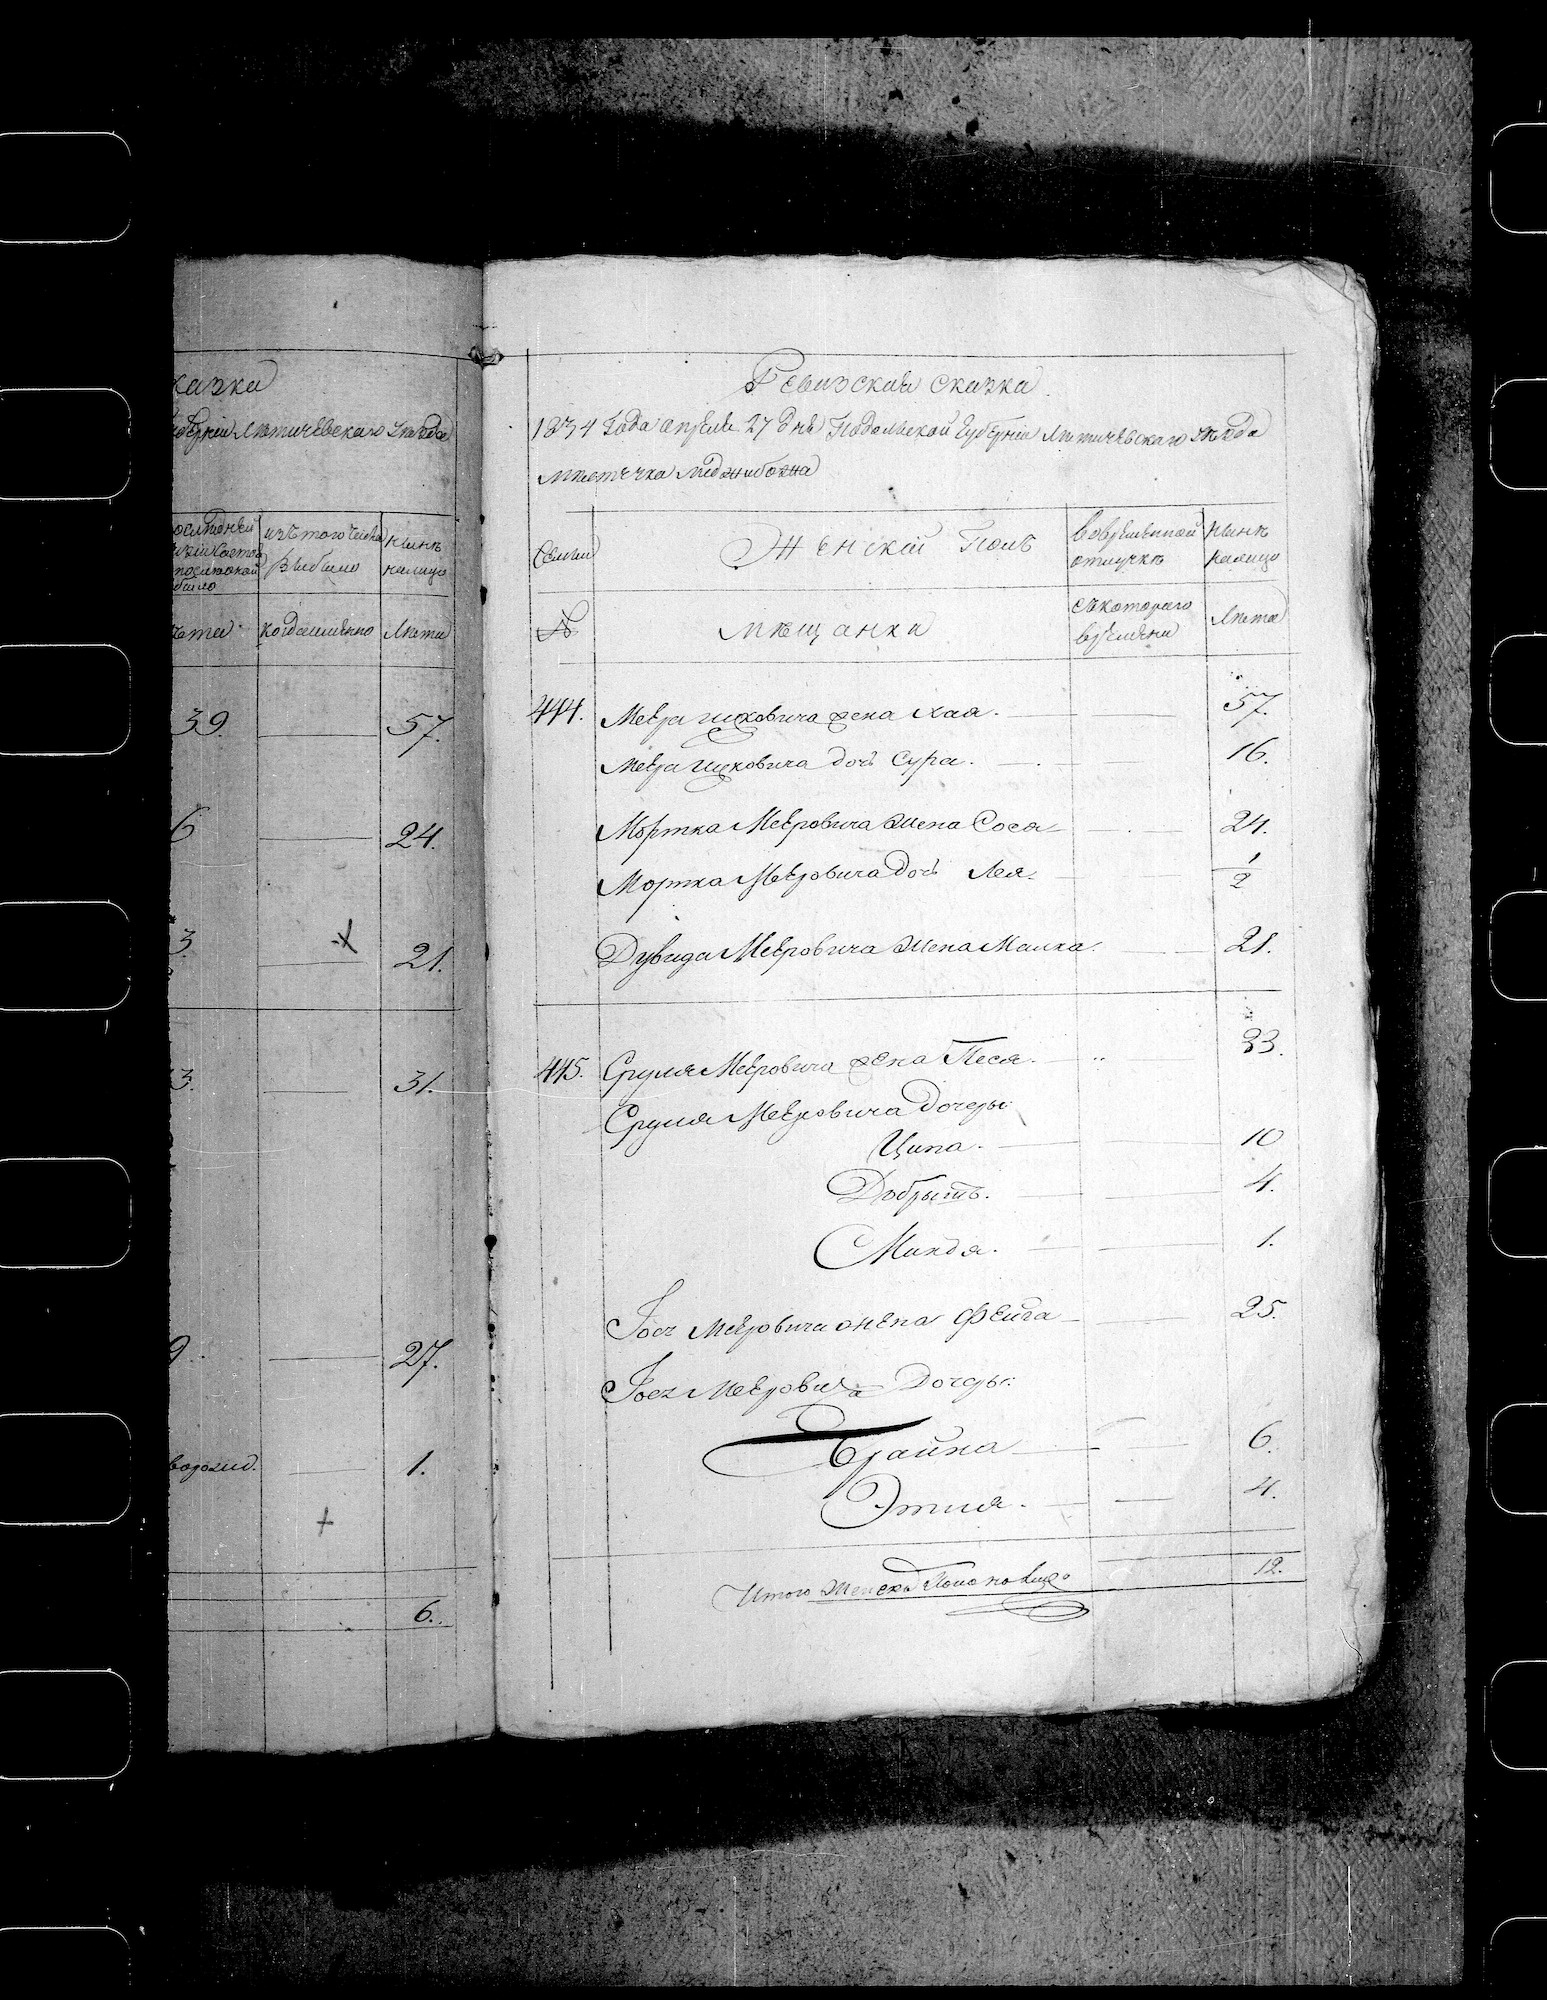 казка
губерніи Летичевскаго уезда
последней изъ того числа ныне
выбыло налицо
было
лета когда именно лета
39. 57.
6 24.
3. + 21.
3. 31.
9. 27.
1.
+
6.
Ревизская сказка
1834 года апреля 27 дня Подольской губерніи Летичевскаго уезда
местечка Меджибожа
Семьи Женскій Полъ Во временной отлучке ныне налицо
№ мещанки съ котораго времени Лета
444. Меера Ицковича жена Хая. 57.
Меера Ицковича дочь Сура. 16.
Мортка Мееровича жена Сося 24.
Мортка Мееровича дочь Лея. 1/2
Дувида Мееровича жена Малка. 21.
445. Сруля Мееровича жена Песя. 33.
Сруля Мееровича дочеры:
Ципа. 10
Добрышъ. 4.
Миндя. 1.
Іося Мееровича жена Фейга 25.
Іося Мееровича дочеры:
Брайна 6.
Этля. 4.
Итого женска пола на лицо 12.